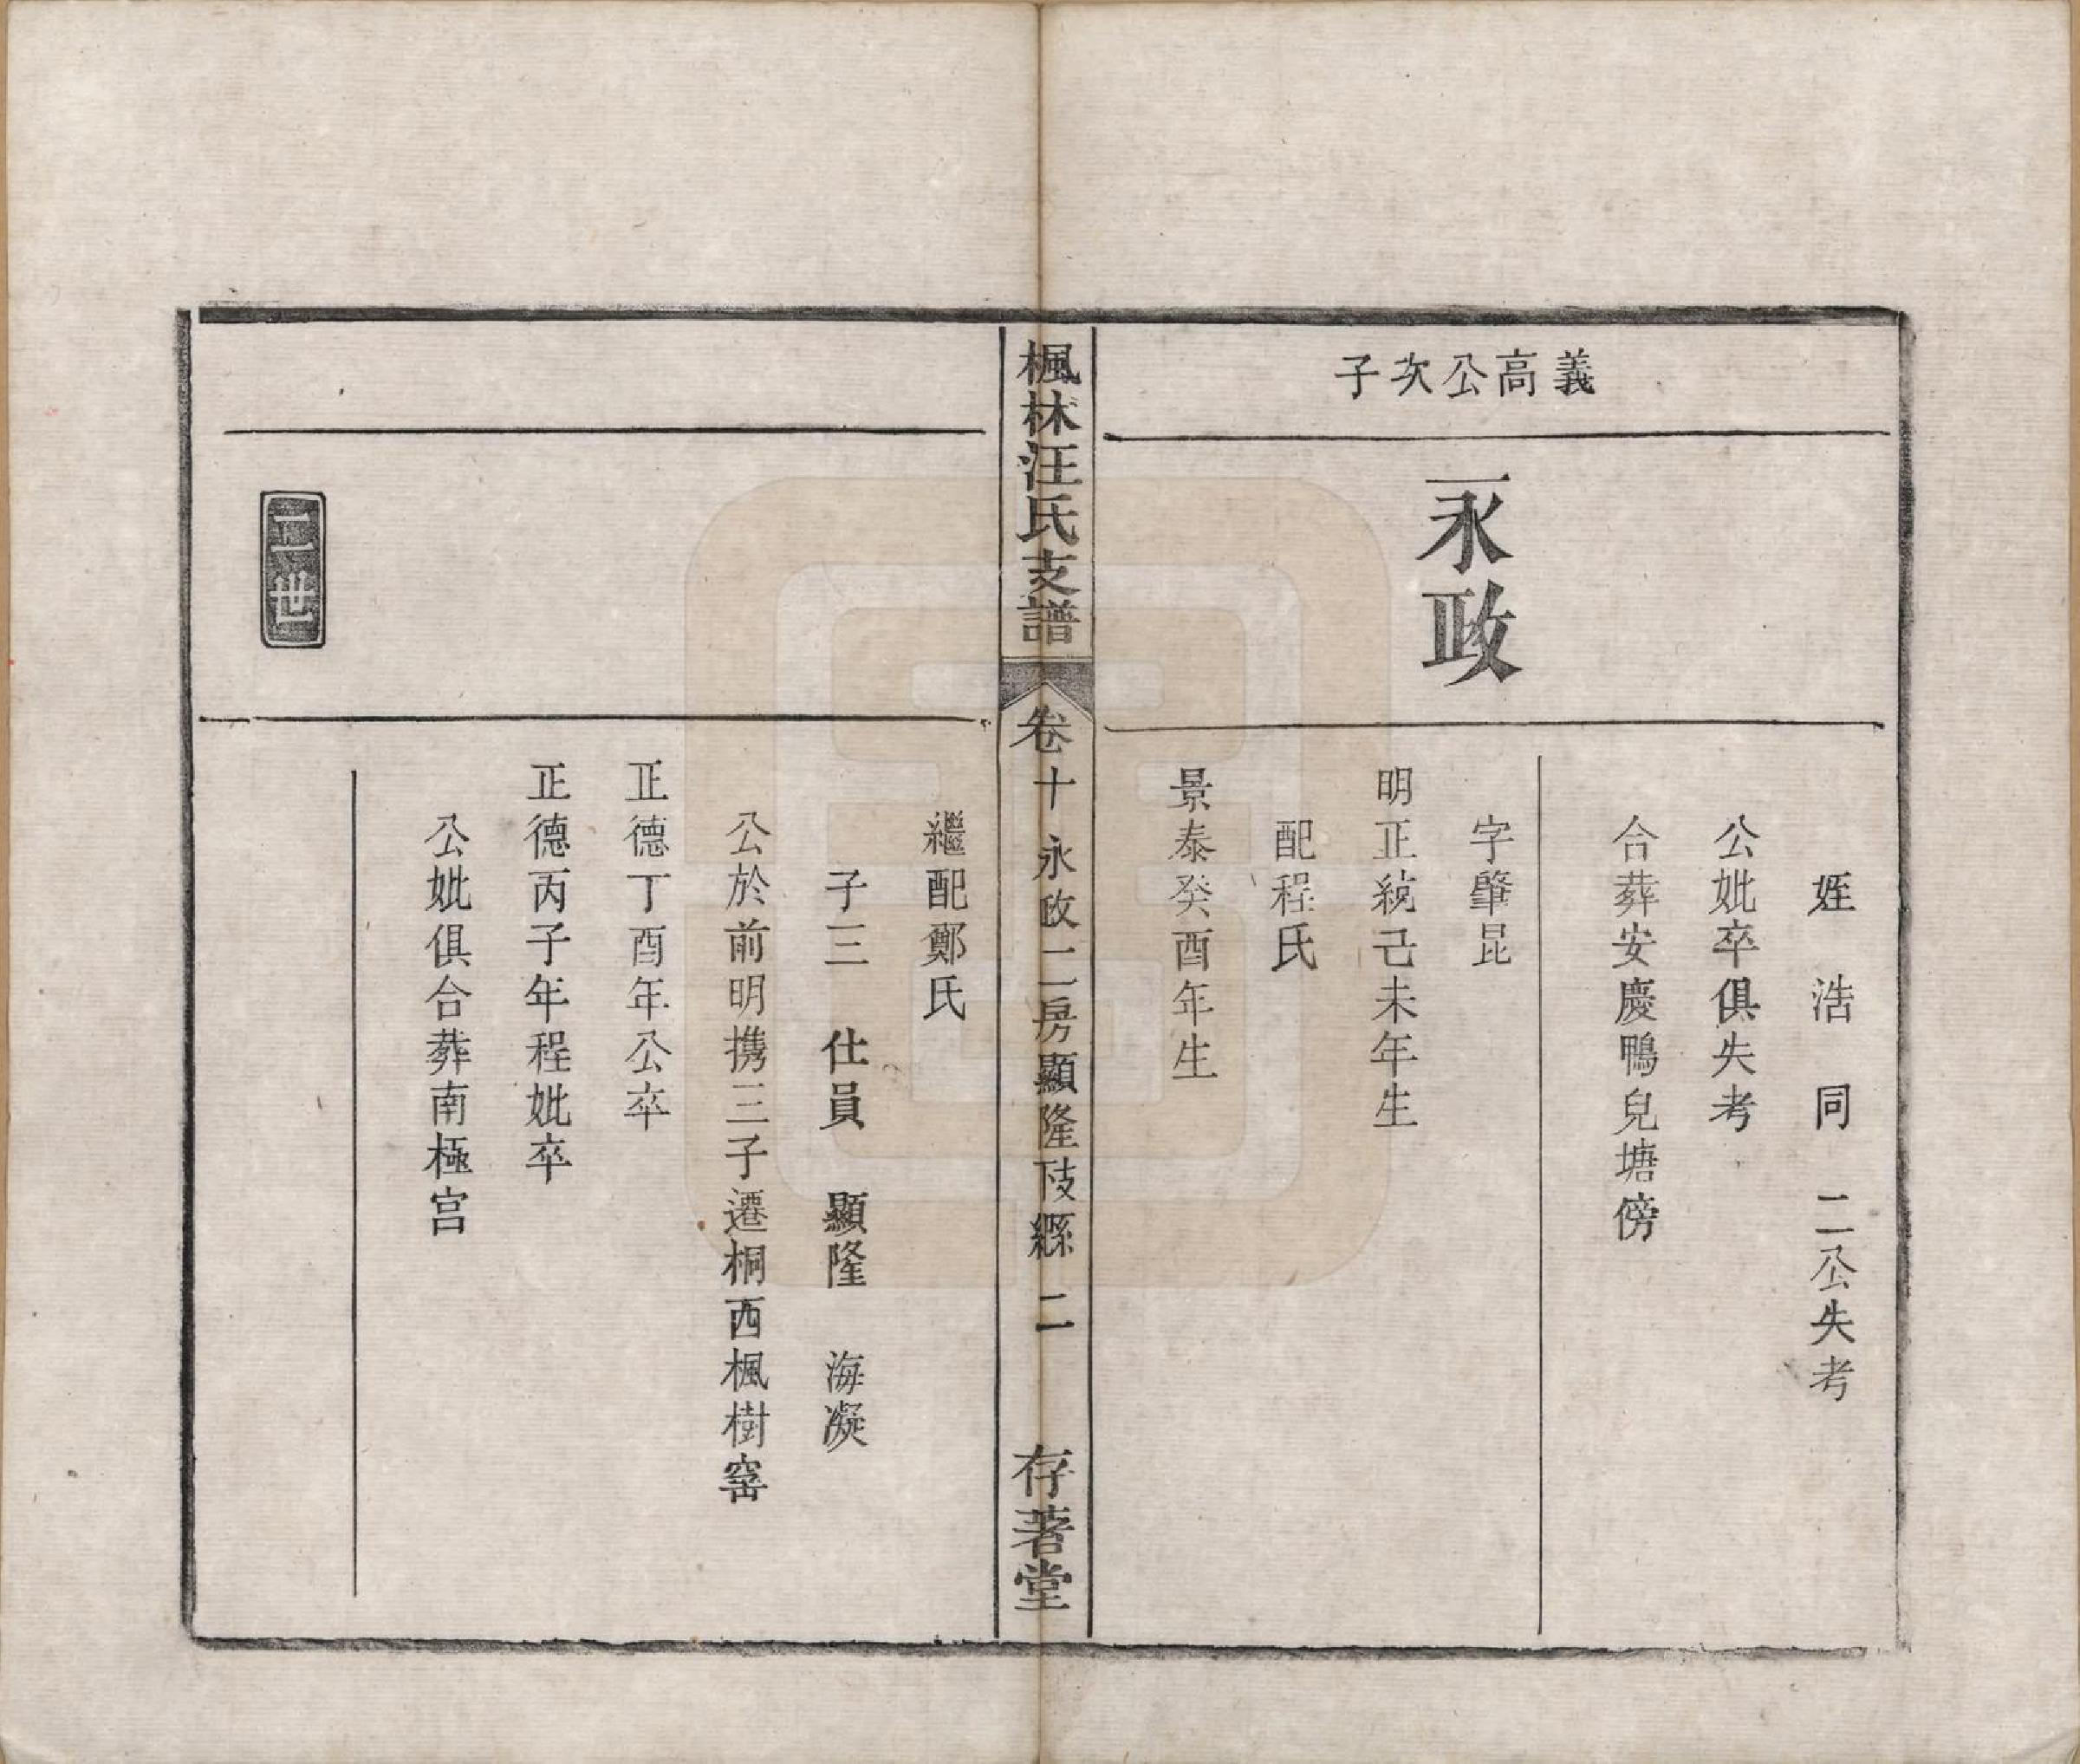 姪　浩　同　二公失考
公妣卒俱失考
合葬安慶鴨兒塘傍
義高公次子
永政
字肇昆
明正統己未年生
配程氏
景泰癸酉年生
楓林汪氏支譜
卷十　永政二房顯隆𢻃緜　二
存著堂
繼配鄭氏
子三　仕員　顯隆　海凝
公於前明携三子遷桐西楓樹窑
正德丁酉年公卒
正德丙子年程妣卒
公妣俱合葬南極宫
二世